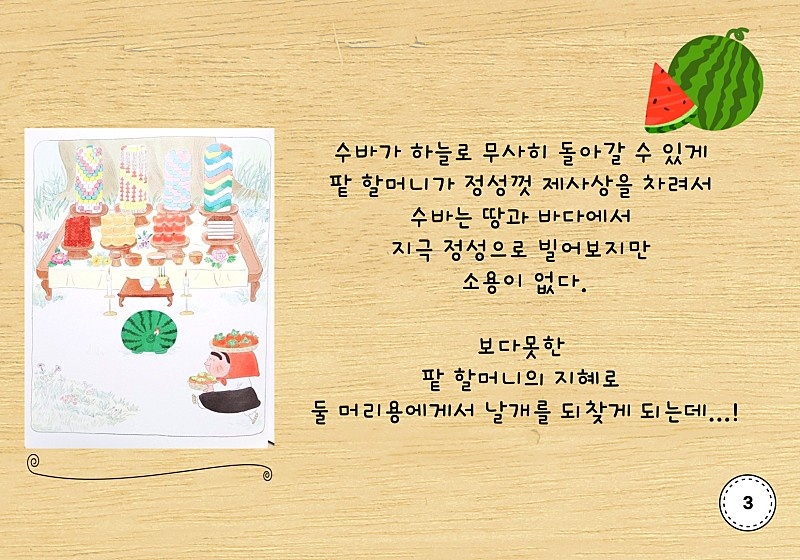 수바가 하늘로 무사히 돌아갈 수 있게
팥 할머니가 정성껏 제사상을 차려서
수바는 땅과 바다에서
지극 정성으로 빌어보지만
소용이 없다.
보다못한
팥 할머니의 지혜로
둘 머리용에게서 날개를 되찾게 되는데...!
3